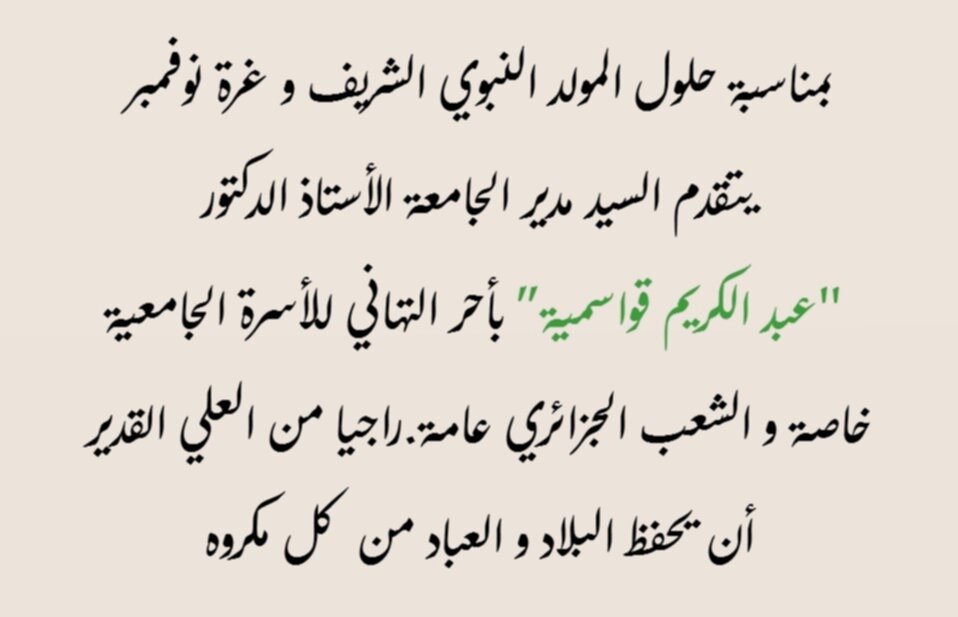 بمناسبة حلول المولد النبوي الشريف و غرة نوفمبر
يتقدم السيد مدير الجامعة الأستاذ الدكتور
"عبد الكريم قواسمية" بأحر التهاني للأسرة الجامعية
خاصة و الشعب الجزائري عامة.راجيا من العلي القدير
أن يحفظ البلاد و العباد من كل مكروه